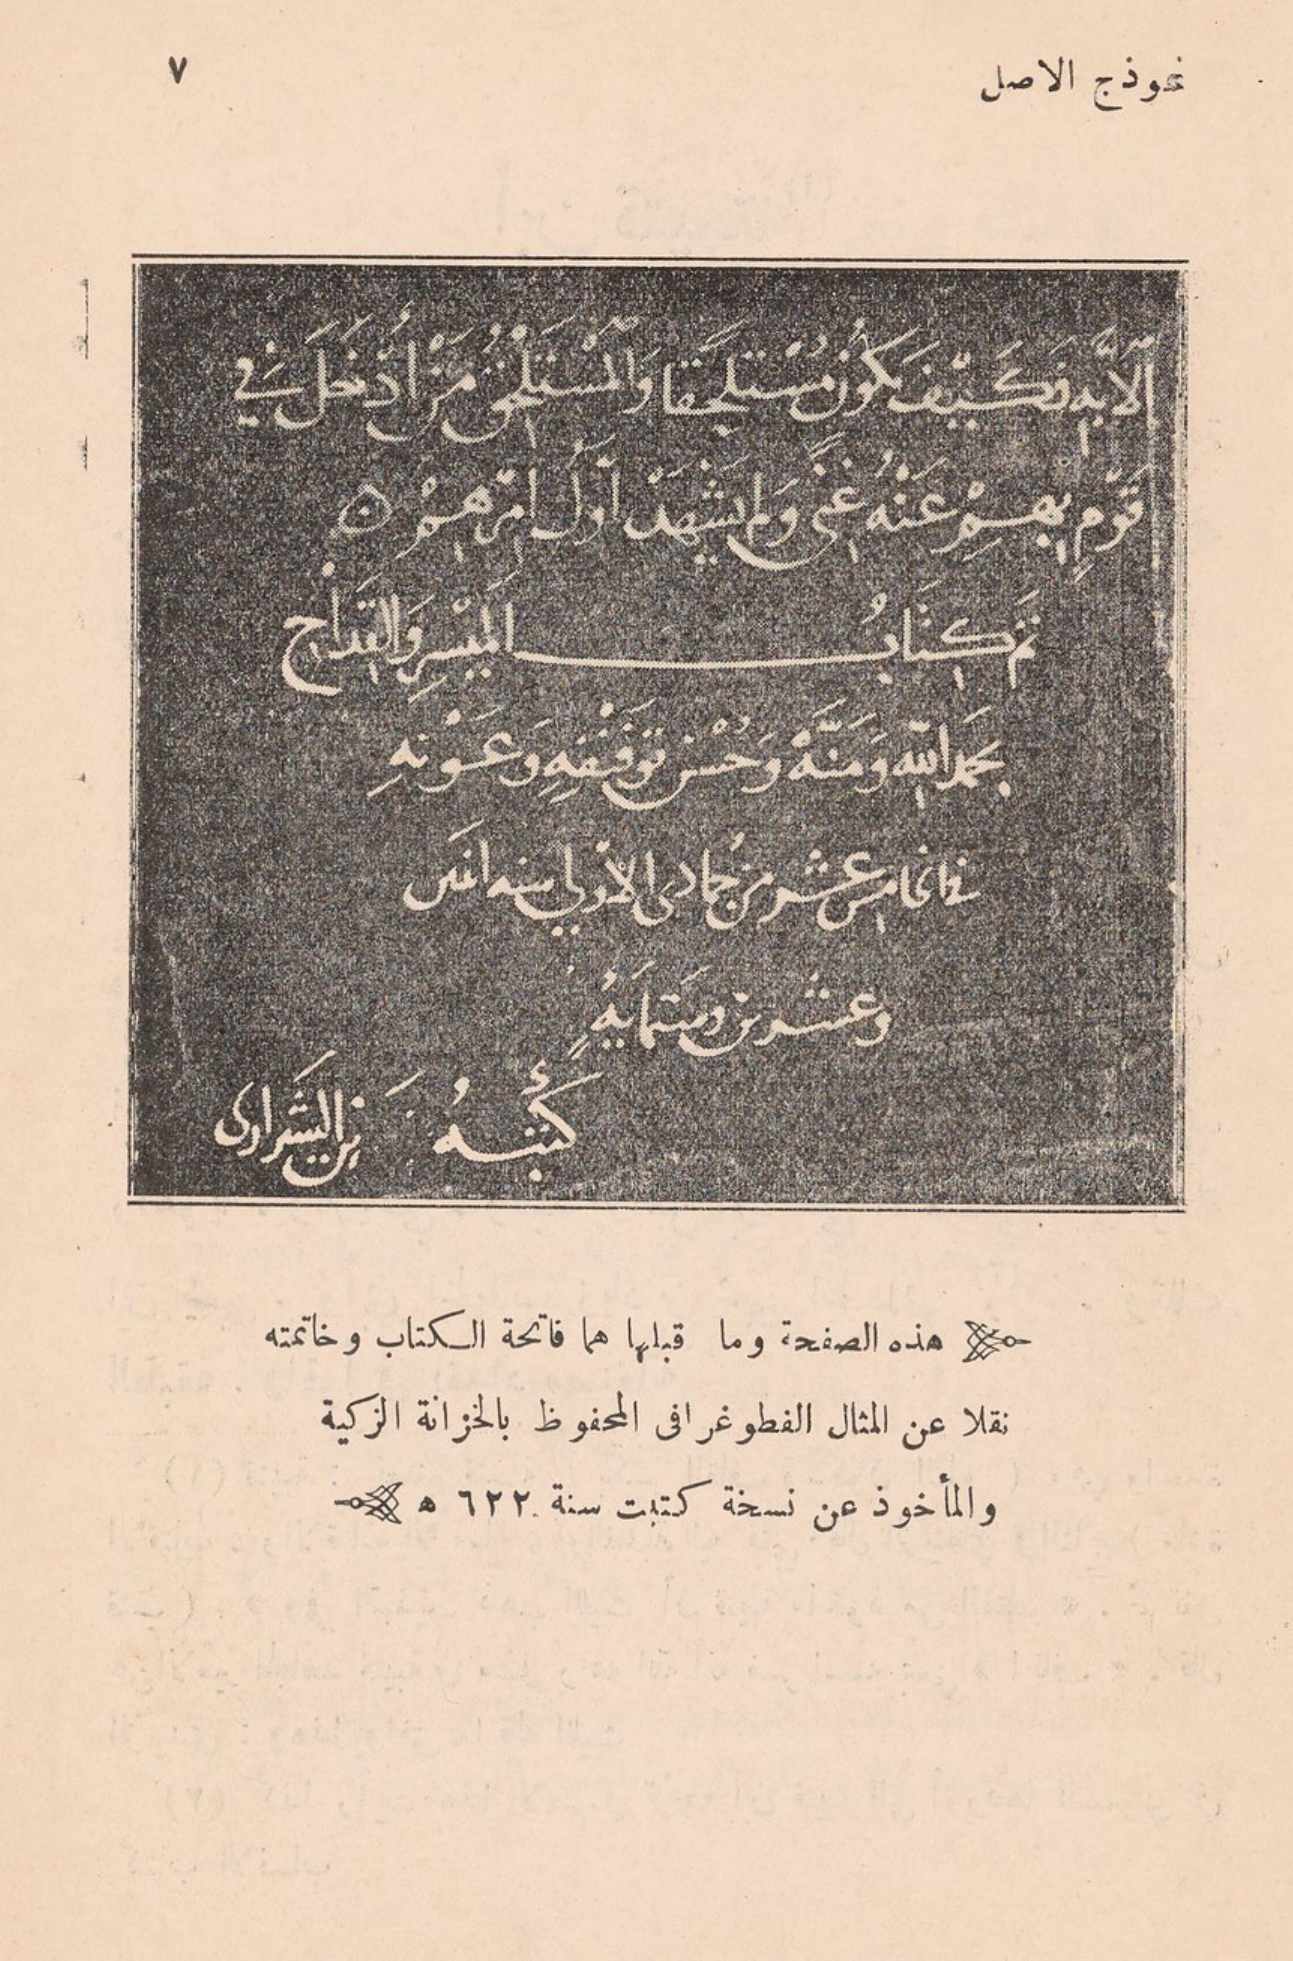 نموذج الاصل ٧
الَّا بِهِ فَكَيْفَ يَكُونُ مُسْتَلْحَقًا وَالمُسْتَلْحَقُ مَنْ أُدْخِلَ فِي
قَوْمٍ بِهِمْ عَنْهُ غِنًى وَلَم يَشْهَدْ أَوَّلَ أَمْرِهِمْ
تَمَّ كِتَابُ المَيْسِرِ وَالقِدَاحِ
بحَمدِ اللّهِ وَمَنِّهِ وَحُسْنِ تَوْفِيقِهِ وَعَوْنِهِ
في خامس عشر من جُمادى الأولى سنه اثنتين
وعشرين وستمايةٍ
كَتَبَهُ بن الشيرازى
هذه الصفحة وما قبلها هما فاتحة الكتاب وخاتمته
نقلا عن المثال الفطوغرافى المحفوظ بالخزانة الزكية
والمأخوذ عن نسخة كتبت سنة ٦٢٢ ه